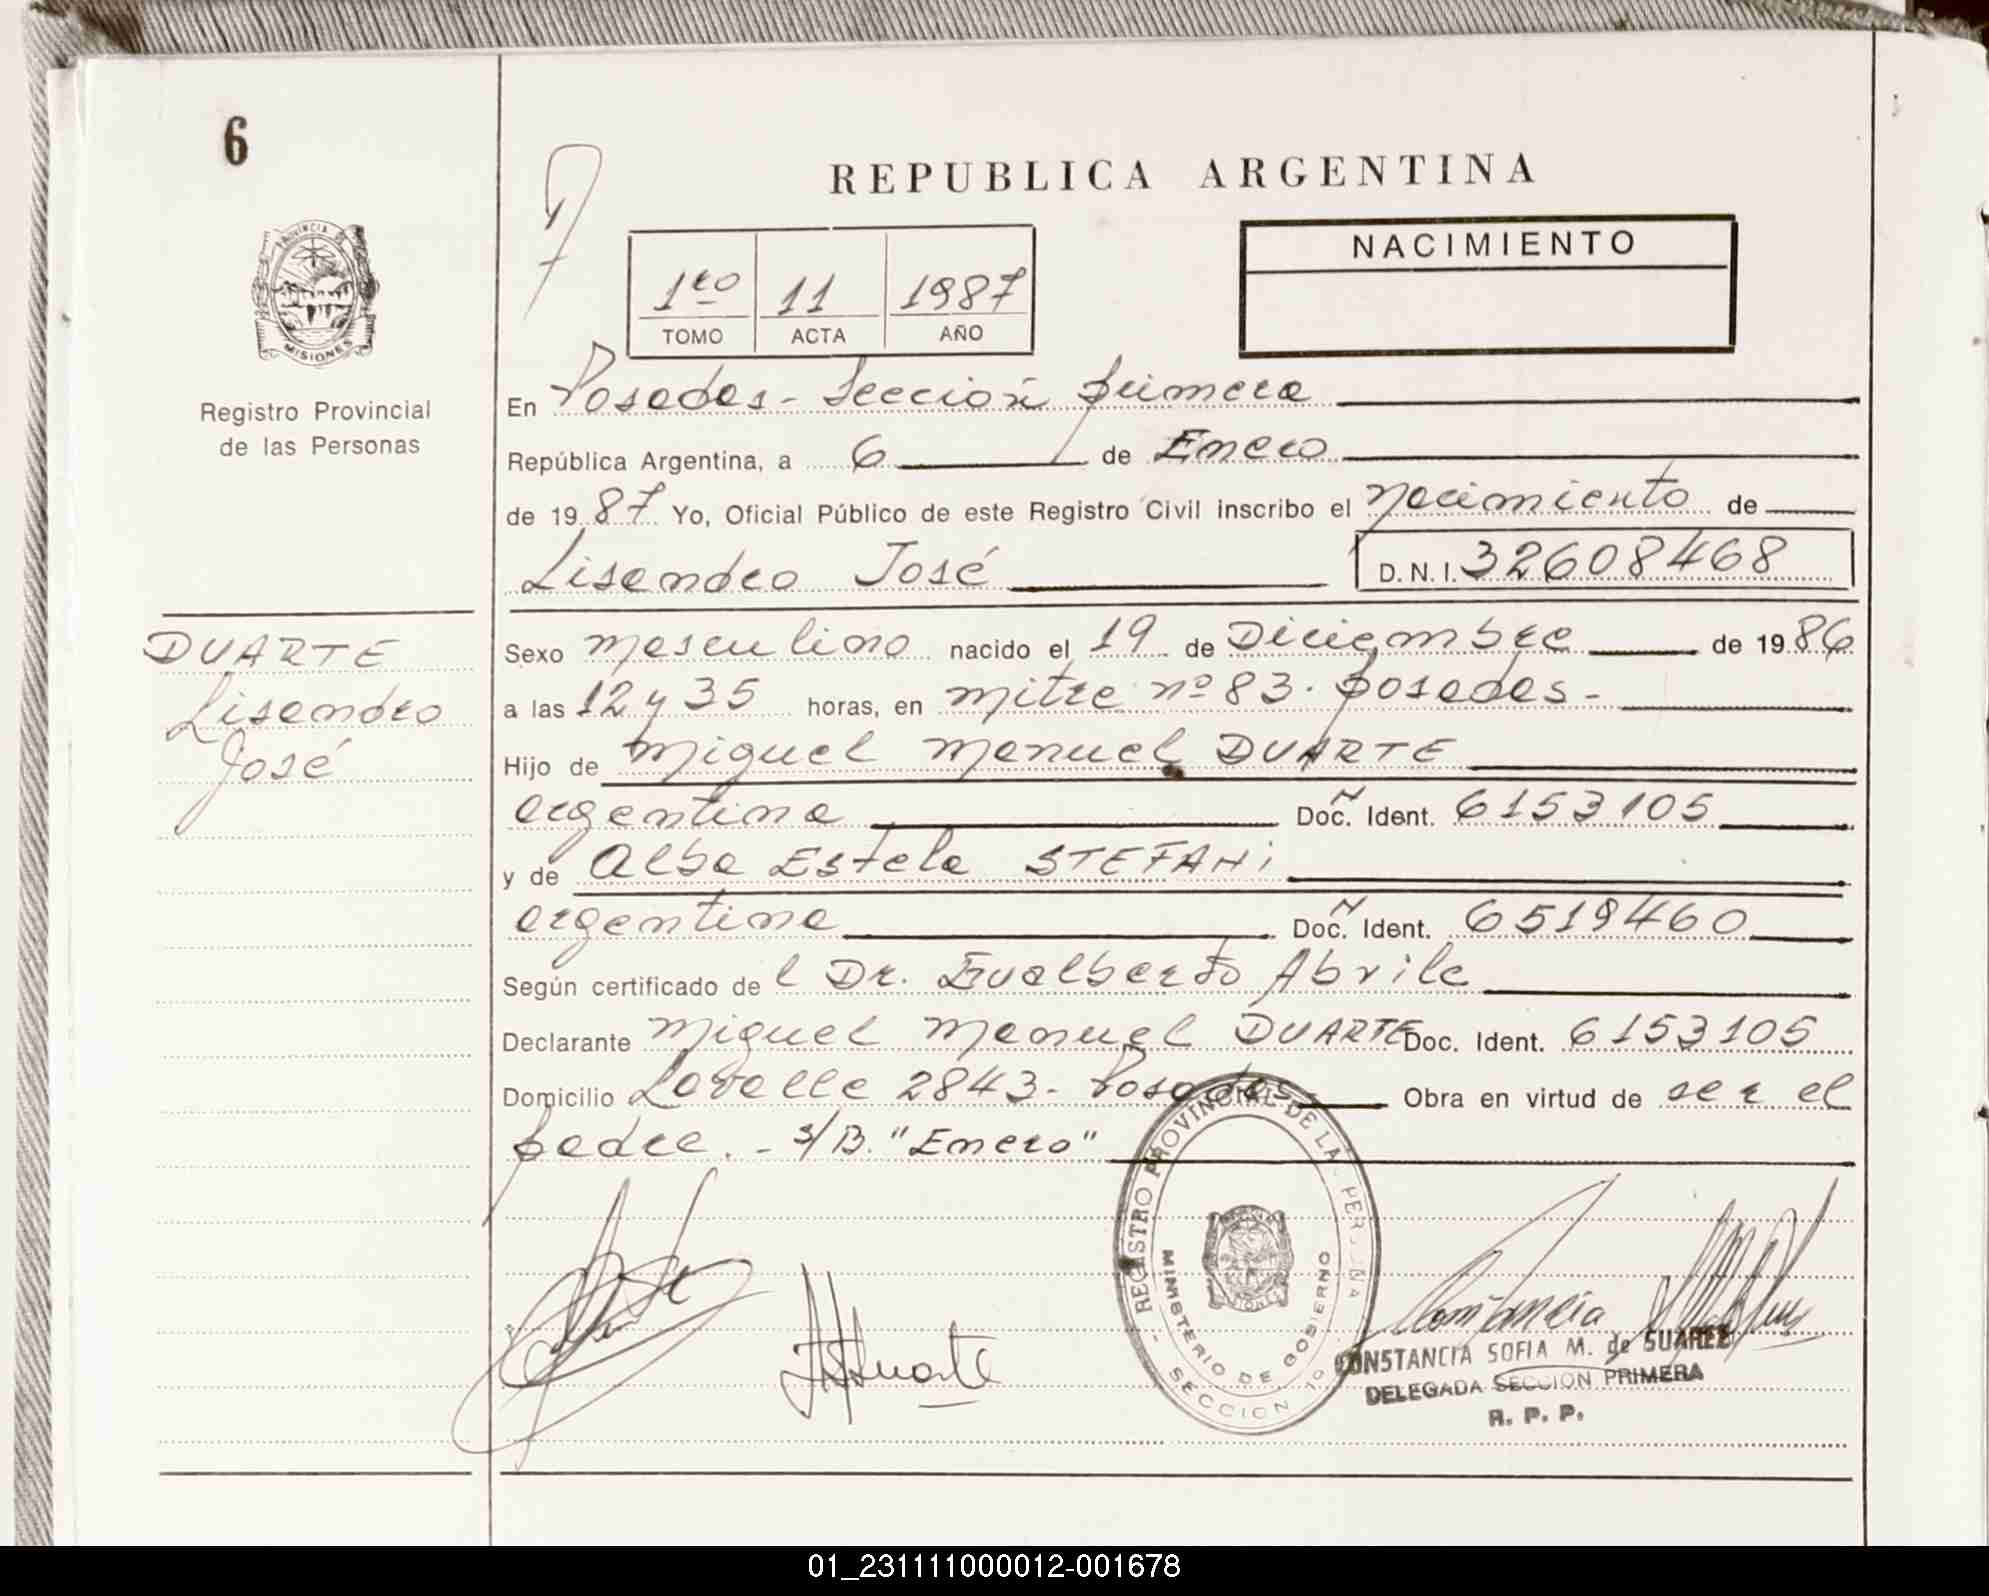 6
REPUBLICA ARGENTINA
NACIMIENTO
1ro 11 1987
TOMO ACTA AÑO
PROVINCIA DE
MISIONES
Registro Provincial
de las Personas
En Posadas - Sección primera
República Argentina, a 6 de Enero
de 1987 Yo, Oficial Público de este Registro Civil inscribo el nacimiento de
Lisandro José D.N.I. 32608468
DUARTE
Lisandro
José
Sexo masculino nacido el 19 de Diciembre de 1986
a las 12 y 35 horas, en mitre nº 83. posadas -
Hijo de Miguel Manuel DUARTE
argentina Doc. Ident. 6153105
y de Alba Estela STEFANi
argentina Doc. Ident. 6519460
Según certificado de l Dr. Eualberto Abrile
Declarante Miguel Manuel DUARTE Doc. Ident. 6153105
Domicilio Lavalle 2843 - Posadas Obra en virtud de ser el
padre. - s/B. "Enero"
REGISTRO PROVINCIAL DE LAS PERSONAS
MINISTERIO DE GOBIERNO
SECCION 10
Duarte
Constancia
CONSTANCIA SOFIA M. de SUAREZ
DELEGADA SECCION PRIMERA
R. P. P.
01_231111000012-001678